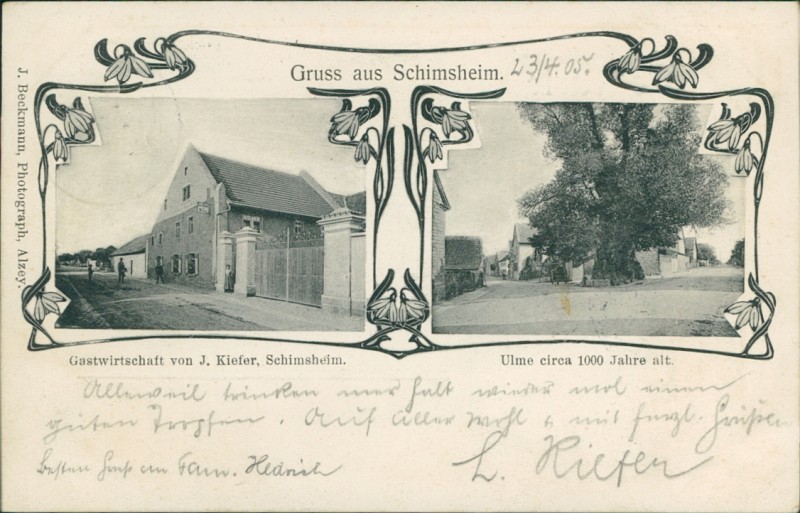 Gruss aus Schimsheim. 23/4. 05.
J. Beckmann, Photograph, Alzey.
Gastwirtschaft von J. Kiefer, Schimsheim.
Ulme circa 1000 Jahre alt.
Alleweil trinken mer halt wieder mol einen
guten Tropfen. Auf aller Wohl & mit herzl. Grüßen
Besten Gruß an Fam. Hedrich
L. Kiefer